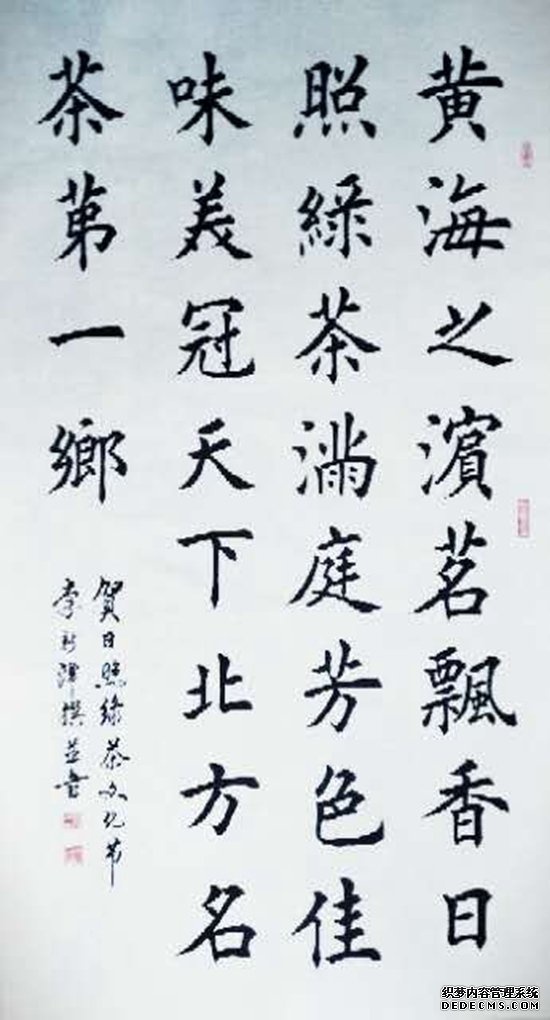 黄海之濱茗飄香日
照綠茶滿庭芳色佳
味美冠天下北方名
茶第一鄉
贺日照绿茶文化节
李新泽撰并书
织梦内容管理系统
DEDECMS.COM